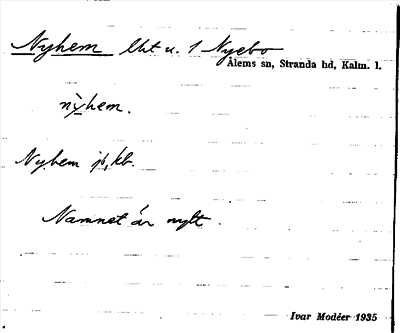 Nyhem lht u. 1 Nyebo
Ålems sn, Stranda hd, Kalm. l.
nỳhem.
Nyhem jb, kb.
Namnet är nytt.
Ivar Modéer 1935